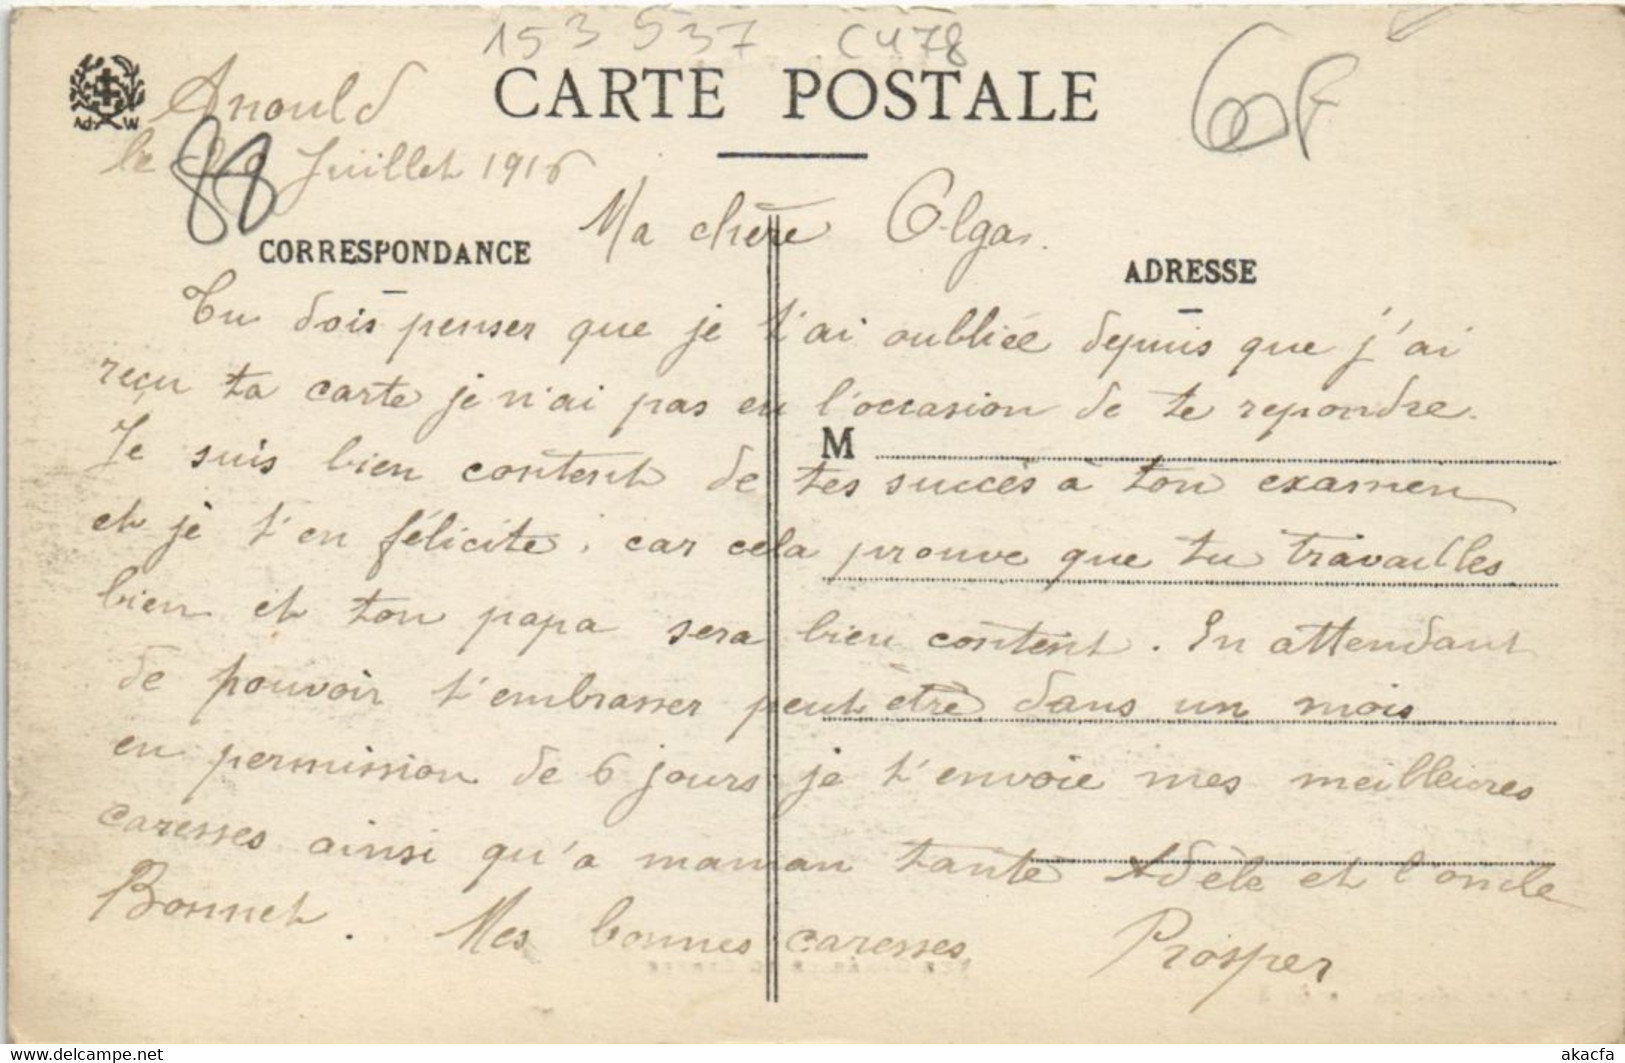 153 537 C478
CARTE POSTALE
60F
Ad W
Anould
le Juillet 1916
88
Ma chère Olga.
CORRESPONDANCE
ADRESSE
Tu dois penser que je t'ai oubliée depuis que j'ai
reçu ta carte je n'ai pas eu l'occasion de te repondre.
M
Je suis bien content de tes succès à ton examen
et je t'en félicite, car cela prouve que tu travailles
bien et ton papa sera bien content. En attendant
de pouvoir t'embrasser peut être dans un mois
en permission de 6 jours je t'envoie mes meilleures
caresses ainsi qu'a maman tante Adèle et l'oncle
Bonnet. Mes bonnes caresses. Prosper
www.delcampe.net
akacfa